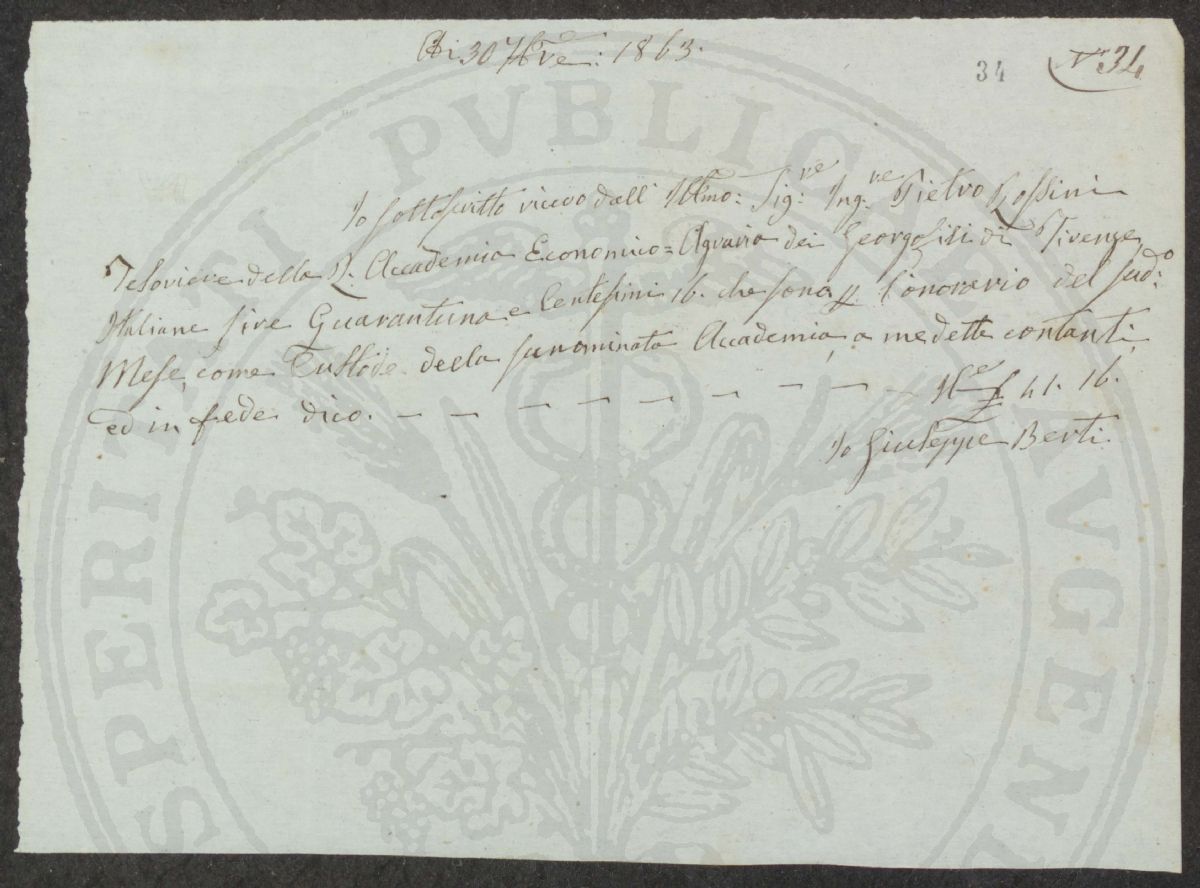 30 1863.
34 N.º 34
Io sottoscritto ricevo dall' Illmo: Sig:re Ing:re Pietro Rossini
Tesoriere della R. Accademia Economico=Agraria dei Georgofili di Firenze
Italiane Lire Quarantuna e Centesimi 16. che sono l'onorario del sud:o
Mese, come Custode della sunominata Accademia, a me dette contanti,
ed in fede dico. — — — — — — — — 41. 16.
Io Giuseppe Berti.
PUBLICAE
SPERITATI
AUGEN